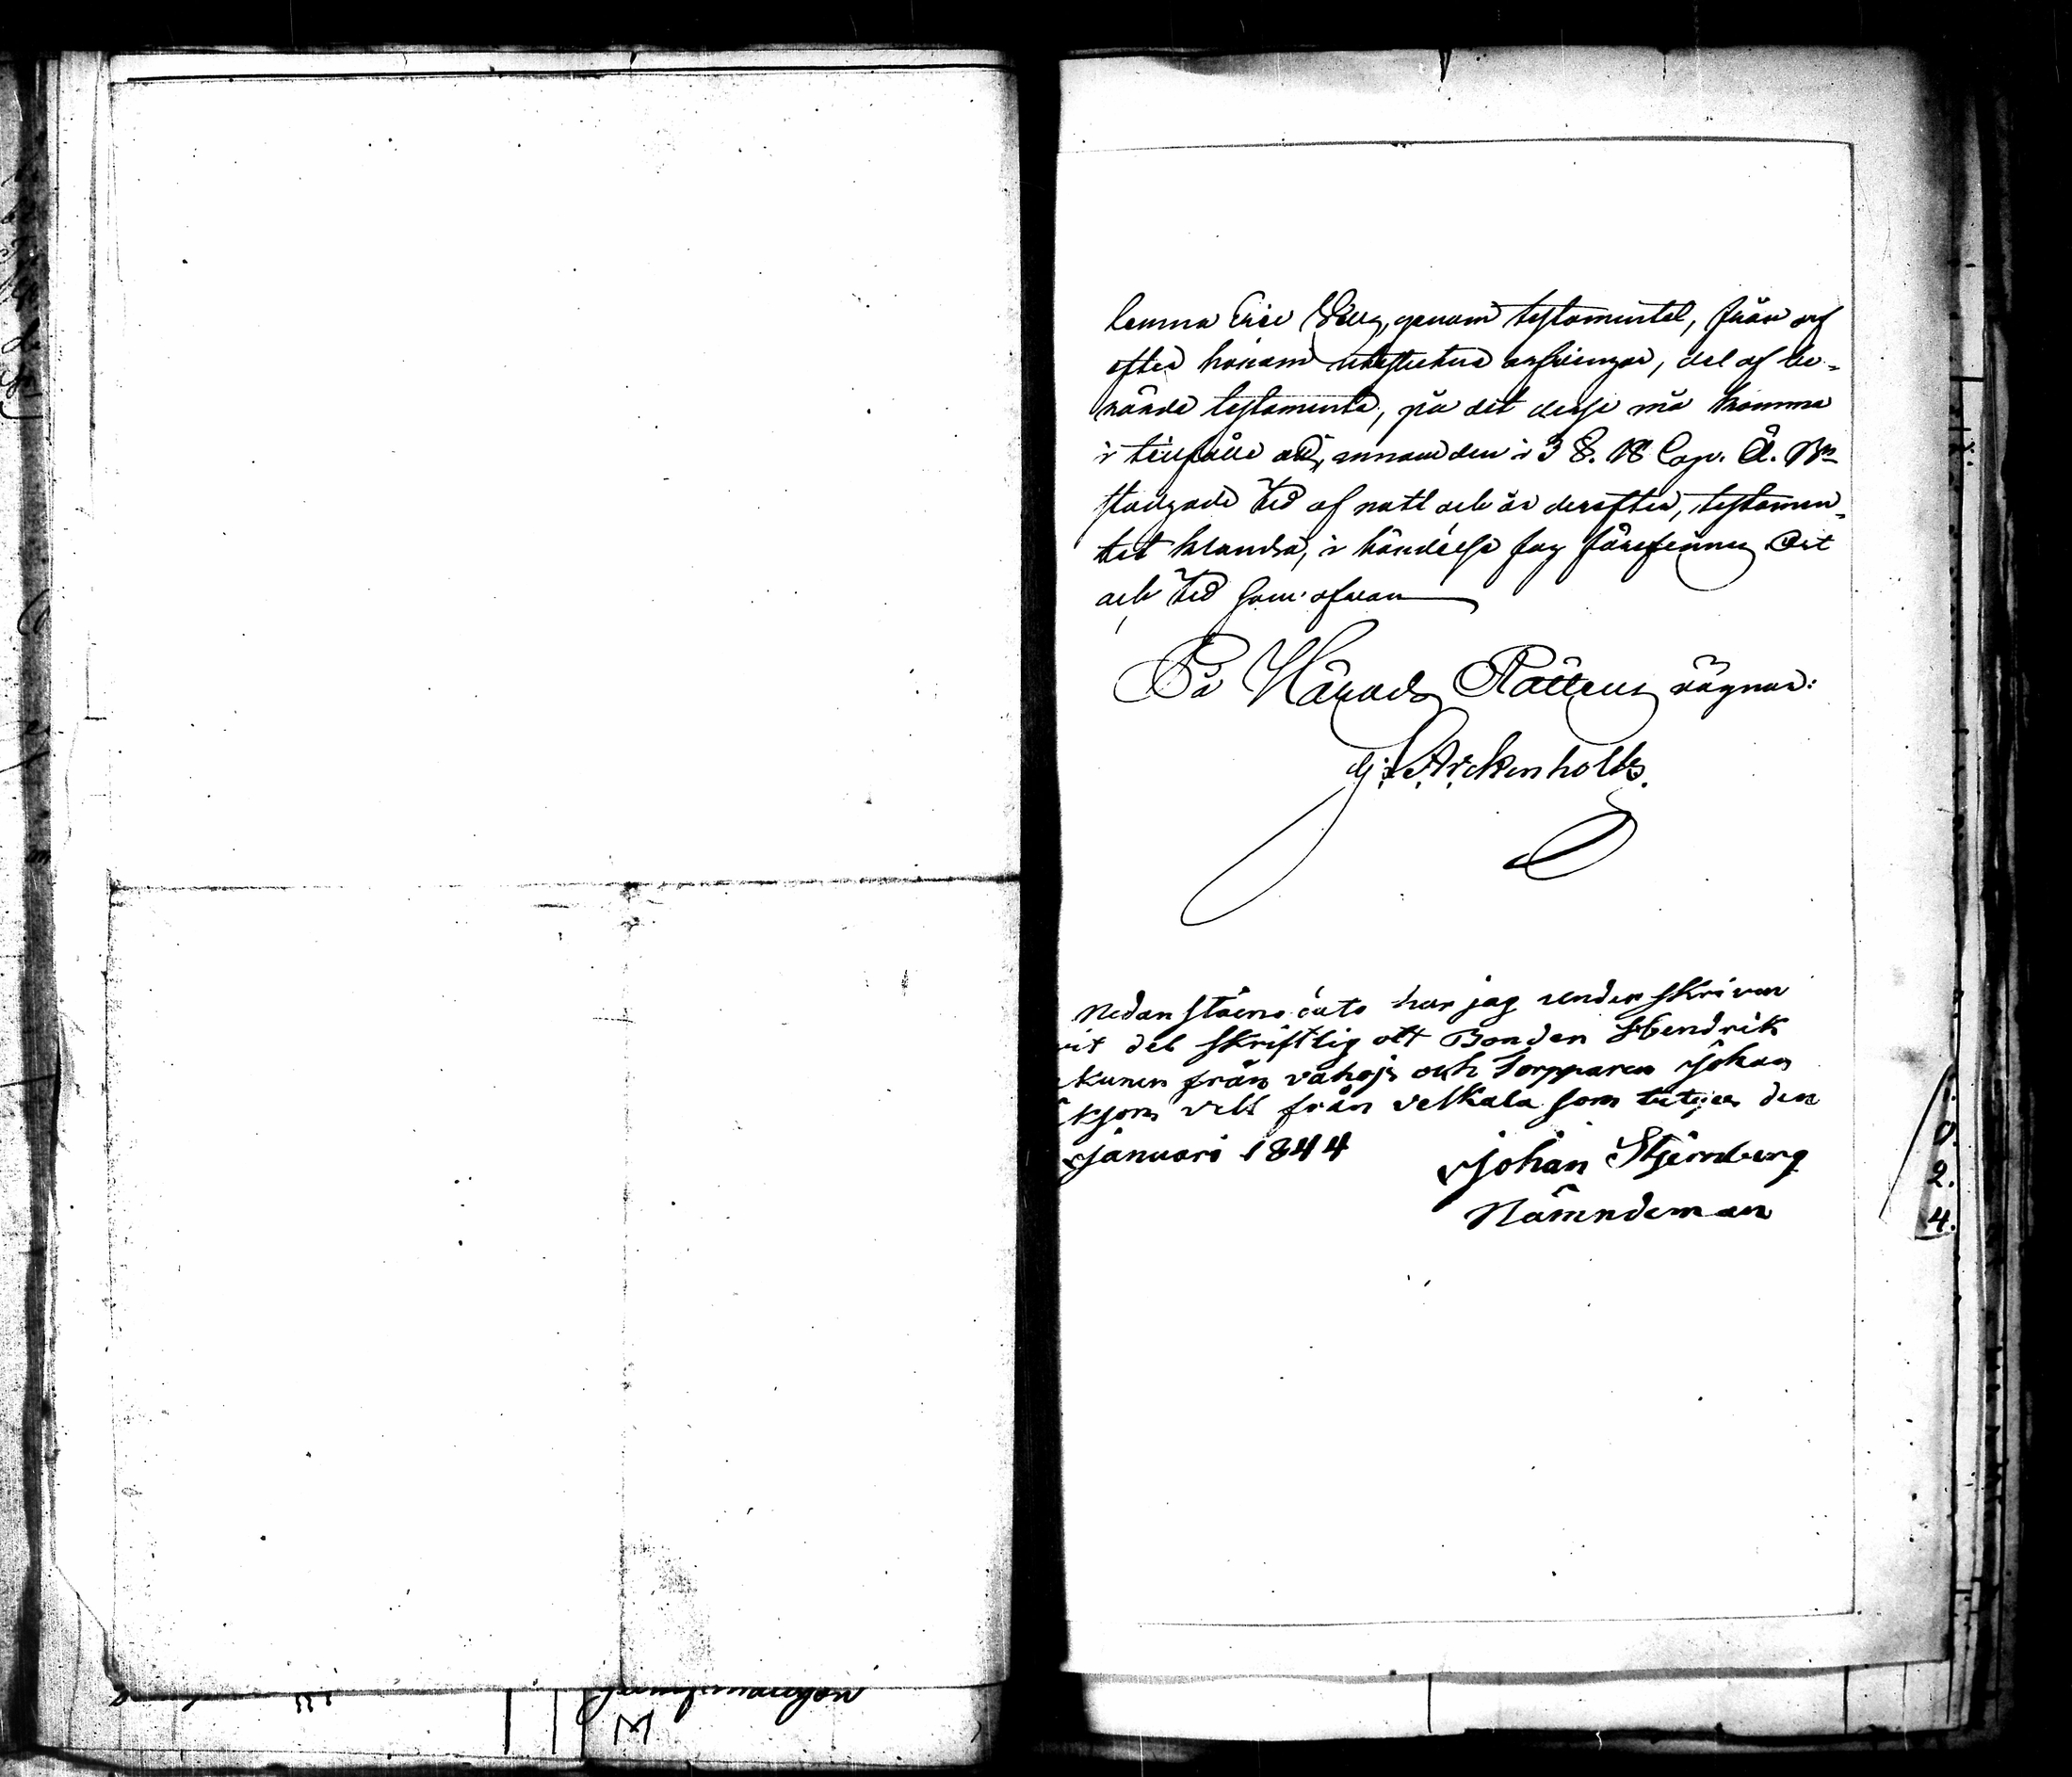 lemna Eric Wäng, genom testamentet, från arf
efter honom uteslutna arfvingar, del af be-
rörde testamente, på det desse må komma
i tillfälle att, innan den i 3 §. 18 Cap. Ä. B.
stadgade tid af natt och år derefter, testamen-
tet klandra, i händelse fog förefinnes Ort
och tid som ofvan
På Härads Rättens vägnar:
G: Arckenholtz.
Nedanståene dato har jag underskriven
vit del skriftlig att Bonden Hendrik
kunen från vahoja och torpparen Johan
från velkala som betyas den
Januari 1844
Johan Stjernberg
Nämndeman
2.
4.